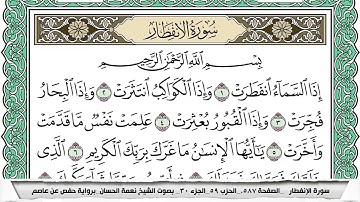 سُورَةُ الانفِطَارِ
بِسْمِ ٱللَّهِ ٱلرَّحْمَٰنِ ٱلرَّحِيمِ
إِذَا ٱلسَّمَآءُ ٱنفَطَرَتْ ١ وَإِذَا ٱلْكَوَاكِبُ ٱنتَثَرَتْ ٢ وَإِذَا ٱلْبِحَارُ
فُجِّرَتْ ٣ وَإِذَا ٱلْقُبُورُ بُعْثِرَتْ ٤ عَلِمَتْ نَفْسٌ مَّا قَدَّمَتْ
وَأَخَّرَتْ ٥ يَٰٓأَيُّهَا ٱلْإِنسَٰنُ مَا غَرَّكَ بِرَبِّكَ ٱلْكَرِيمِ ٦ ٱلَّذِى
سورة الإنفطار _ الصفحة ٥٨٧. الحزب ٥٩. الجزء ٣٠. بصوت الشيخ نعمة الحسان .برواية حفص عن عاصم